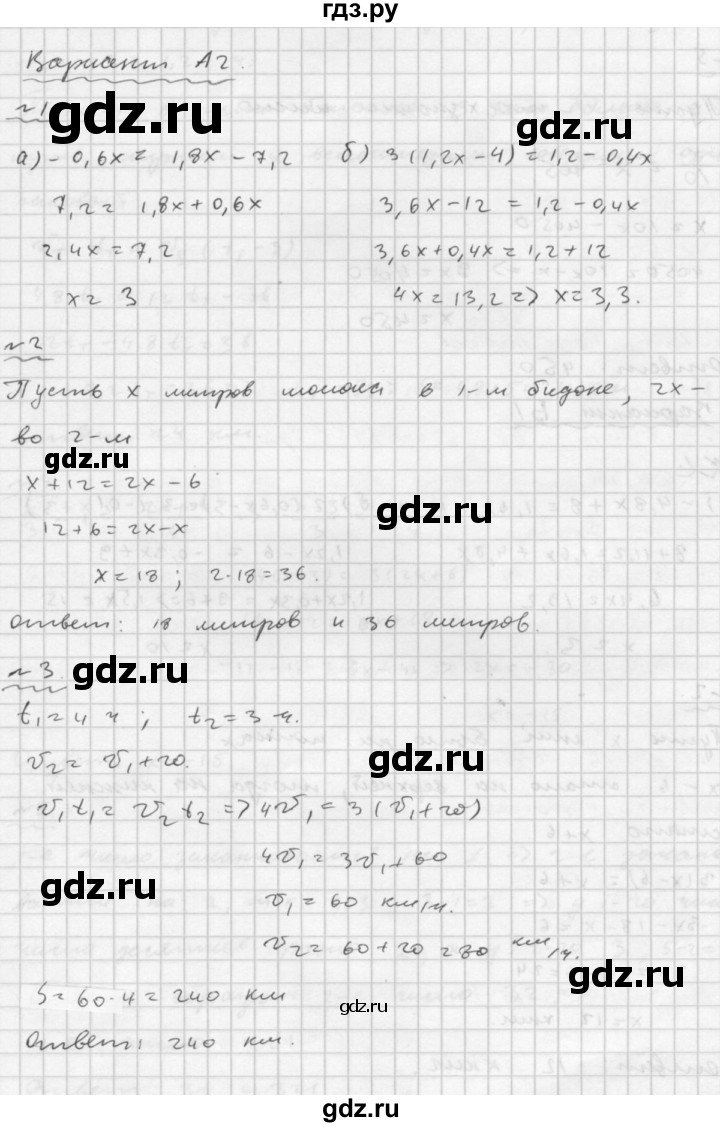 гдз.ру
Вариант А2.
№1
gdz.ru
а) -0,6x = 1,8x - 7,2
7,2 = 1,8x + 0,6x
2,4x = 7,2
x = 3
gdz.ru
б) 3(1,2x-4) = 1,2 - 0,4x
3,6x - 12 = 1,2 - 0,4x
3,6x + 0,4x = 1,2 + 12
4x = 13,2 => x = 3,3.
№2
Пусть x литров молока в 1-м бидоне, 2x -
во 2-м
gdz.ru
x + 12 = 2x - 6
gdz.ru
12 + 6 = 2x - x
x = 18 ; 2·18 = 36.
Ответ: 18 литров и 36 литров.
№3.
gdz.ru
t₁ = 4 ч ; t₂ = 3 ч.
v₂ = v₁ + 20.
gdz.ru
v₁t₁ = v₂t₂ => 4v₁ = 3(v₁ + 20)
4v₁ = 3v₁ + 60
gdz.ru
v₁ = 60 км/ч.
v₂ = 60 + 20 = 80 км/ч.
gdz.ru
S = 60·4 = 240 км
gdz.ru
Ответ: 240 км.
gdz.ru